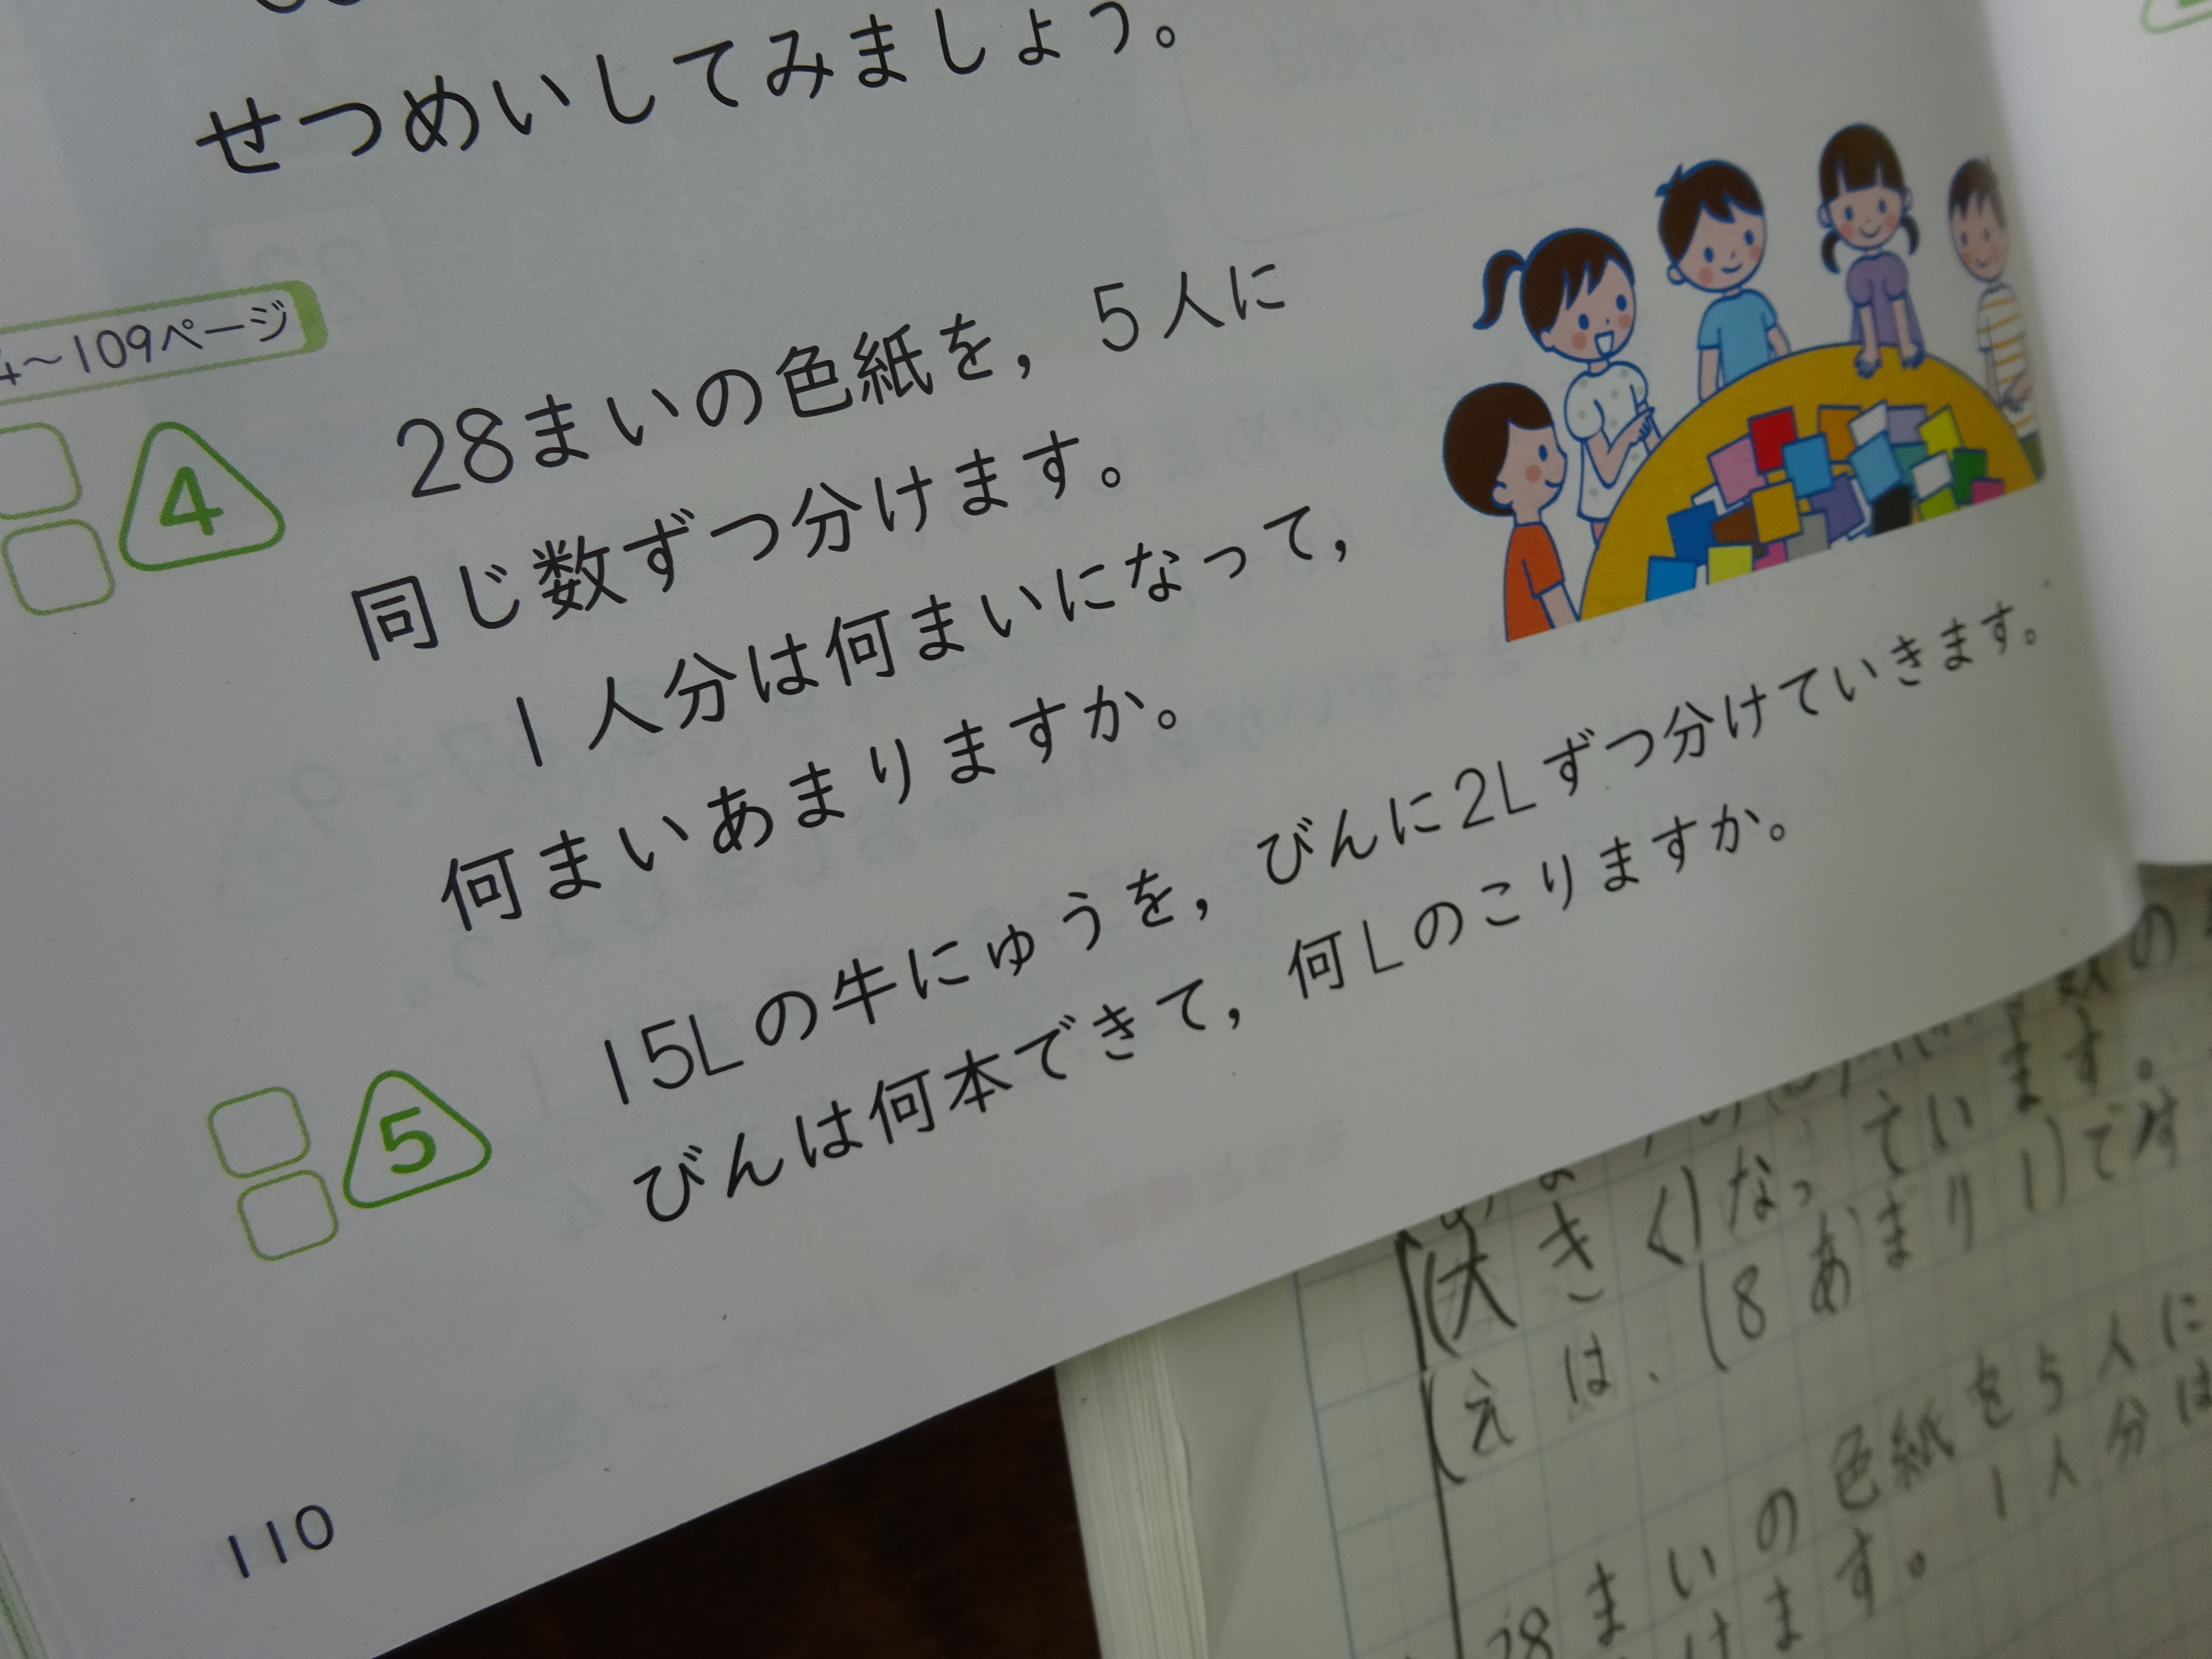 せつめいしてみましょう。
4〜109ページ
4
28まいの色紙を，5人に
同じ数ずつ分けます。
1人分は何まいになって，
何まいあまりますか。
5
15Lの牛にゅうを，びんに2Lずつ分けていきます。
びんは何本できて，何Lのこりますか。
110
数の
なっています。
(大きく)
えは、(8あまり1)で
28まいの色紙を5人に
けます。1人分は